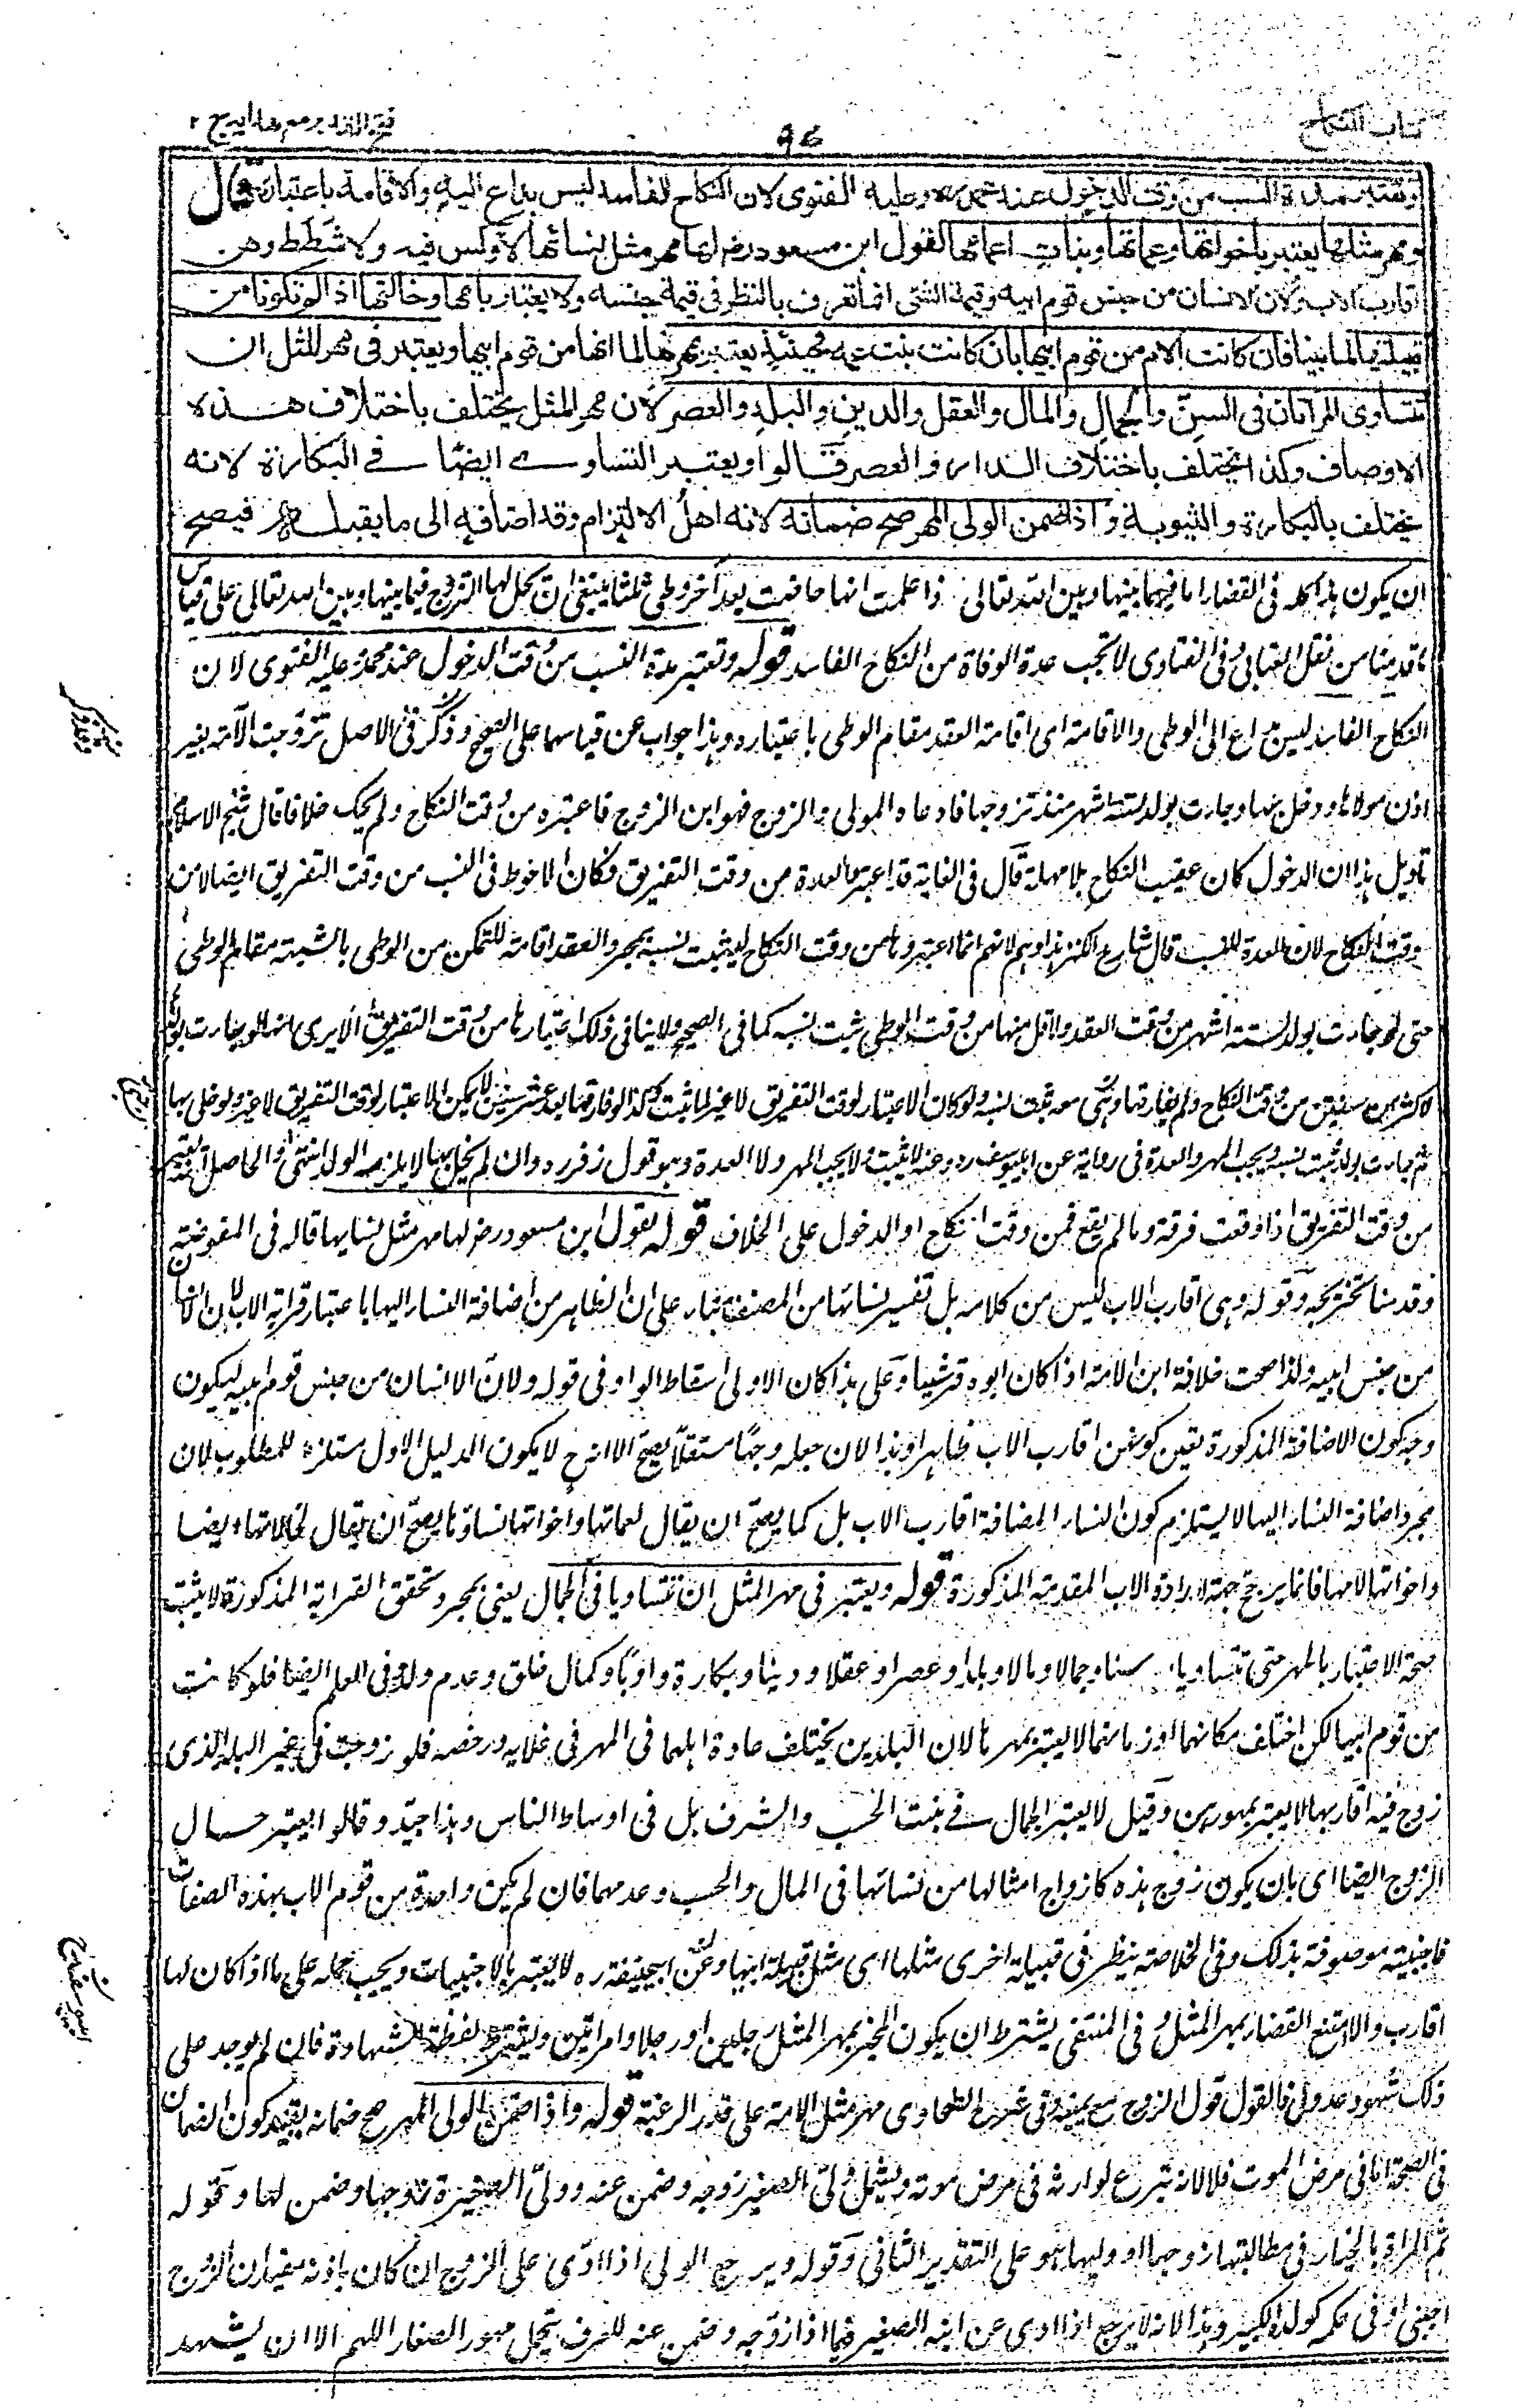 كتاب النكاح
٩٤
فتح القدير مع هدايه ج ٢
وتعتبر مدة النسب من وقت الدخول عند محمد ره وعليه الفتوى لان النكاح الفاسد ليس بداع اليه والاقامة باعتباره قال
ومهر مثلها يعتبر باخواتها وعماتها وبنات اعمامها لقول ابن مسعود رض لها مهر مثل نسائها لا وكس فيه ولا شطط وهن
اقارب الاب ولان الانسان من جنس قوم ابيه وقيمة الشئ انما تعرف بالنظر فى قيمة جنسه ولا يعتبر بامها وخالتها اذا لم تكونا من
قبيلتها لما بينا فان كانت الام من قوم ابيها بان كانت بنت عمه فحينئذ يعتبر بمهرها لما انها من قوم ابيها ويعتبر فى مهر المثل ان
تتساوى المرأتان فى السن والجمال والمال والعقل والدين والبلد والعصر لان مهر المثل يختلف باختلاف هذه
الاوصاف وكذا يختلف باختلاف الدار والعصر قالوا ويعتبر التساوى ايضا فى البكارة لانه
يختلف بالبكارة والثيوبة واذا ضمن الولى المهر صح ضمانه لانه اهل الالتزام وقد اضافه الى ما يقبله فيصح
ان يكون هذا كله فى القضاء اما فيما بينها وبين الله تعالى اذا علمت انها حاضت بعد آخر وطى ثلثا ينبغى ان تحل لها التزوج فيما بينها وبين الله تعالى على قياس
ما قدمنا من نقل العتابى وفى الفتاوى لا تجب عدة الوفاة من النكاح الفاسد قوله وتعتبر مدة النسب من وقت الدخول عند محمد وعليه الفتوى لان
النكاح الفاسد ليس بداع الى الوطى والاقامة اى اقامة العقد مقام الوطى باعتباره وهذا جواب عن قياسهما على الصحيح وذكر فى الاصل تزوجت الامة بغير
اذن مولاها ودخل بها وجاءت بولد لستة اشهر منذ تزوجها فادعاه المولى والزوج فهو ابن الزوج فاعتبره من وقت النكاح ولم يحك خلافا قال شيخ الاسلام
تاويل هذا ان الدخول كان عقيب النكاح بلا مهلة قال فى الغاية قد اعتبروا العدة من وقت التفريق فكان الاحوط فى النسب من وقت التفريق ايضا لا من
وقت النكاح لان العدة للنسب قال شارح الكنز هذا وهم لانهم انما اعتبروها من وقت النكاح ليثبت نسبه بمجرد العقد اقامة للتمكن من الوطى بالشبهة مقام الوطى
حتى لو جاءت بولد لستة اشهر من وقت العقد ولاقل منها من وقت الوطى يثبت نسبه كما فى الصحيح ولا ينافى ذلك اعتبارها من وقت التفريق الا يرى انها لو جاءت بولد
لاكثر من سنتين من وقت النكاح ولم يفارقها وهى معه ثبت نسبه ولو كان الاعتبار لوقت التفريق لا غير لما ثبت وكذا لو فارقها بعد عشر سنين لا يمكن الاعتبار لوقت التفريق لا غير ولو خلى بها
ثم جاءت بولد ثبت نسبه ويجب المهر والعدة فى رواية عن ابى يوسف ره وعنه لا يثبت ولا يجب المهر ولا العدة وهو قول زفر ره وان لم يخل بها لا يلزمه الولد انتهى والحاصل انه يعتبر
من وقت التفريق اذا وقعت فرقة وما لم يقع فمن وقت النكاح او الدخول على الخلاف قوله لقول ابن مسعود رض لها مهر مثل نسائها قاله فى المفوضة
وقدمنا تخريجه وقوله وهى اقارب الاب ليس من كلامه بل تفسير نسائها من المصنف بناء على ان الظاهر من اضافة النساء اليها باعتبار قرابة الاب لان الانسان
من جنس ابيه ولذا صحت خلافة ابن الامة اذا كان ابوه قرشيا وعلى هذا كان الاولى اسقاط الواو فى قوله ولان الانسان من جنس قوم ابيه ليكون
وجه كون الاضافة المذكورة يعين كونهن اقارب الاب ظاهرا وهذا لان جعله وجها مستقلا يصح الا ان ح لا يكون الدليل الاول مستلزما للمطلوب لان
مجرد اضافة النساء اليها لا يستلزم كون النساء المضافة اقارب الاب بل كما يصح ان يقال لعماتها واخواتها نساؤها يصح ان يقال لخالاتها ايضا
واخواتها لامها فانما يرجح جهة ارادة الاب المقدمة المذكورة قوله ويعتبر فى مهر المثل ان تتساويا فى الجمال يعنى بمجرد تحقق القرابة المذكورة لا يثبت
صحة الاعتبار بالمهر حتى تتساويا سنا وجمالا ومالا وبلدا وعصرا وعقلا ودينا وبكارة وادبا وكمال خلق وعدم ولد وفى العلم ايضا فلو كانت
من قوم ابيها لكن اختلف مكانهما او زمانهما لا يعتبر بمهرها لان البلدين يختلف عادة اهلهما فى المهر فى غلائه ورخصه فلو زوجت فى غير البلد الذى
زوج فيه اقاربها لا يعتبر بمهورهن وقيل لا يعتبر الجمال فى بيت الحسب والشرف بل فى اوساط الناس وهذا جيد وقالوا يعتبر حال
الزوج ايضا اى بان يكون زوج هذه كازواج امثالها من نسائها فى المال والحسب وعدمهما فان لم يكن واحدة من قوم الاب بهذه الصفات
فاجنبية موصوفة بذلك وفى الخلاصة ينظر فى قبيلة اخرى مثلها اى مثل قبيلة ابيها وعن ابى حنيفة ره لا يعتبر بالاجنبيات ويجب حمله على ما اذا كان لها
اقارب والا امتنع القضاء بمهر المثل وفى المنتقى يشترط ان يكون المخبر بمهر المثل رجلين او رجلا وامراتين ويشترط لفظة الشهادة فان لم يوجد على
ذلك شهود عدول فالقول قول الزوج مع يمينه وفى شرح الطحاوى مهر مثل الامة على قدر الرغبة قوله واذا ضمن الولى المهر صح ضمانه بقيد كون الضمان
فى الصحة اما فى مرض الموت فلا لانه تبرع لوارثه فى مرض موته ويشمل ولى الصغير زوجه وضمن عنه وولى الصغيرة زوجها وضمن لها وقوله
ثم المراة بالخيار فى مطالبتها زوجها او وليها هو على التقدير الثانى وقوله ويرجع الولى اذا ادى على الزوج ان كان باذنه مقيد ان الزوج
اجنبى او فى حكمه كولده الكبير وهذا لانه لا يرجع اذا ادى عن ابنه الصغير فيما اذا زوجه وضمن عنه للعرف بتحمل مهور الصغار اللهم الا ان يشهد